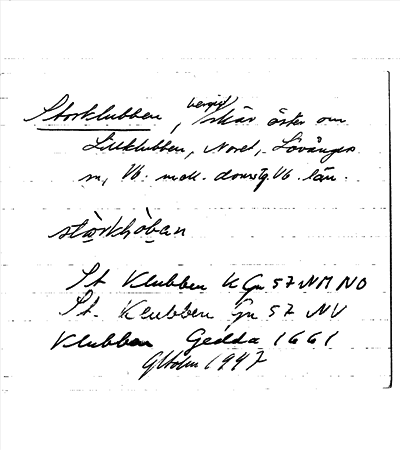 Storklubben, bergigt skär öster om
Lillklubben, Noret, Lövångers
sn, Vb. mell. domsg. Vb. län.
St Klubben K Gn 57 NM NO
St. Klubben Gn 57 NV
Klubben Gedda 1661
GHolm 1947